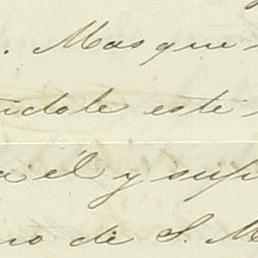 . Mas que
ndole este
a él y sup
no de S. M